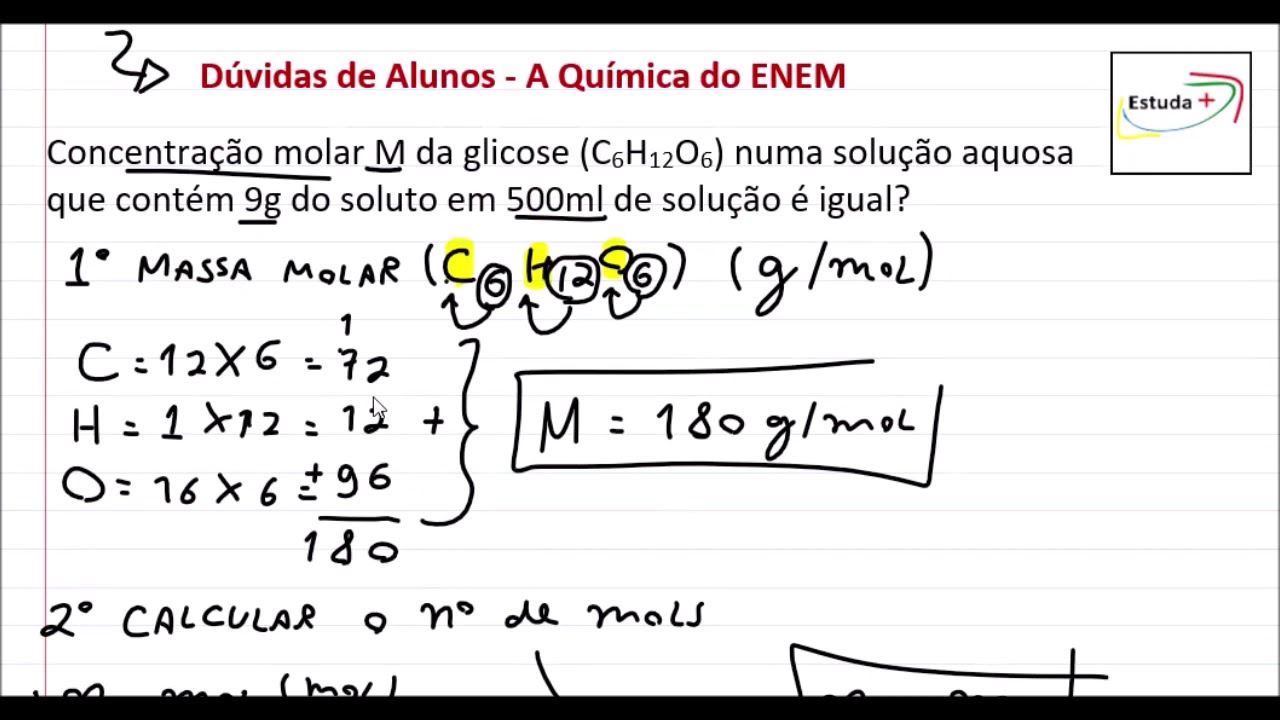 Dúvidas de Alunos - A Química do ENEM
Estuda +
Concentração molar M da glicose (C₆H₁₂O₆) numa solução aquosa
que contém 9g do soluto em 500ml de solução é igual?
1º MASSA MOLAR (C₆ H₁₂ O₆) (g/mol)
1
C = 12 X 6 = 72
H = 1 X 12 = 12 +
O = 16 X 6 = + 96
180
M = 180 g/mol
2º CALCULAR o nº de mols
mol (mol)